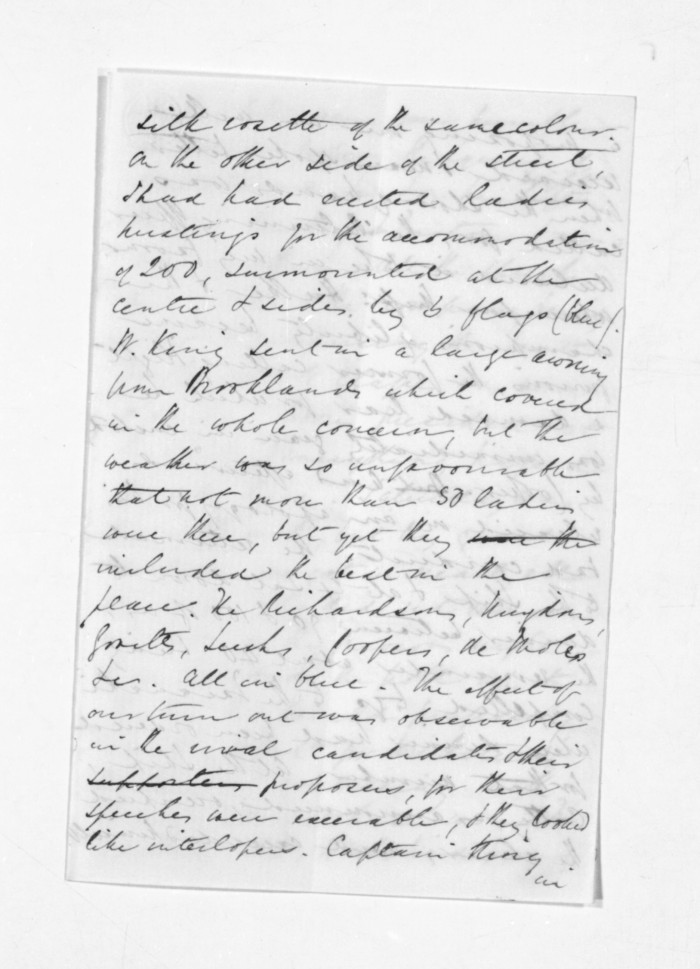 silk rosette of the same colour.
On the other side of the street,
I had had erected ladies
hustings for the accommodation
of 200, surmounted at the
centre & sides by 6 flags (blue).
W. King sent in a large awning
from Brooklands which covered
in the whole concern, but the
weather was so unfavourable
that not more than 50 ladies
were there, but yet they were the
included the best in the
place. The Richardsons, Kingdons,
Leechs, Coopers, de
&c. All in blue. The effect of
our turn out was observable
in the rival candidates & their
supporters proposers, for their
speeches were execrable, & they looked
like interlopers. Captain King
in